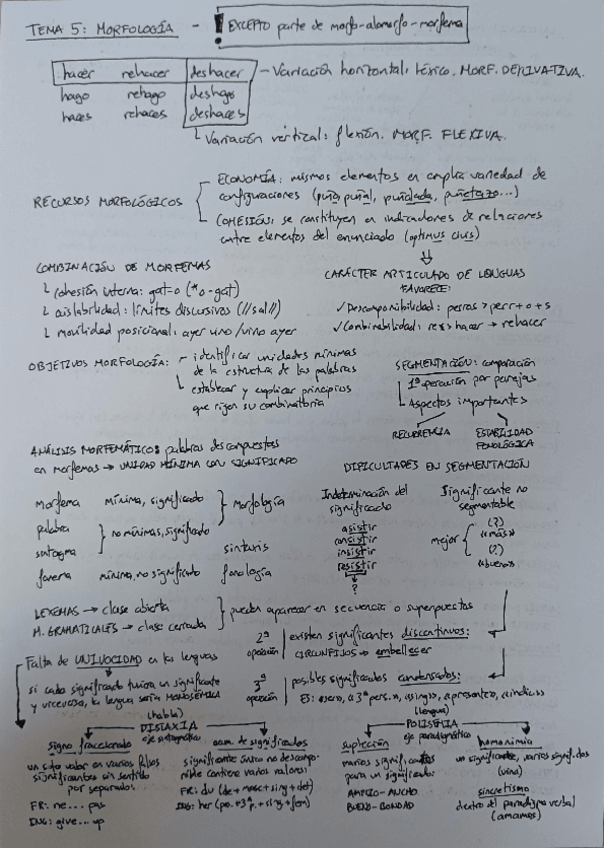 TEMA 5: MORFOLOGÍA - ! EXCEPTO parte de morfo-alomorfo-morfema
hacer rehacer deshacer - Variación horizontal: léxico. MORF. DERIVATIVA.
hago rehago deshago
haces rehaces deshaces
Variación vertical: flexión. MORF. FLEXIVA.
RECURSOS MORFOLÓGICOS
ECONOMÍA: mismos elementos en amplia variedad de
configuraciones (puño, puñal, puñalada, puñetazo...)
COHESIÓN: se constituyen en indicadores de relaciones
entre elementos del enunciado (optimus civis)
COMBINACIÓN DE MORFEMAS
cohesión interna: gat-o (*o-gat)
aislabilidad: límites discursivos (//sal//)
movilidad posicional: ayer vino/vino ayer
CARÁCTER ARTICULADO DE LENGUAS
FAVORECE:
✓Descomponibilidad: perros > perr+o+s
✓Combinabilidad: re+hacer → rehacer
OBJETIVOS MORFOLOGÍA:
identificar unidades mínimas
de la estructura de las palabras
establecer y explicar principios
que rigen su combinatoria
SEGMENTACIÓN: comparación
1ª operación por parejas
Aspectos importantes
RECURRENCIA
ESTABILIDAD
FONOLÓGICA
ANÁLISIS MORFEMÁTICO: palabras descompuestas
en morfemas → UNIDAD MÍNIMA CON SIGNIFICADO
morfema mínima, significado } Morfología
palabra
sintagma
} no mínimas, significado
sintaxis
fonema mínima, no significado fonología
DIFICULTADES EN SEGMENTACIÓN
Indeterminación del
significado
asistir
consistir
insistir
resistir
?
Significante no
segmentable
mejor
(?)
«más»
(?)
«bueno»
LEXEMAS → clase abierta
M. GRAMATICALES → clase cerrada
} pueden aparecer en secuencia o superpuestos
2ª
operación
existen significantes discontinuos:
CIRCUNFIJOS → embellecer
3ª
operación
posibles significados condensados:
ES: «ser», «3ª pers.», «sing», «presente», «indic»
Falta de UNIVOCIDAD en las lenguas
si cada significado tuviera un significante
y viceversa, la lengua sería MONOSÉMICA
(habla)
DISTAXIA
eje sintagmático
signo fraccionado
un solo valor en varios
significantes sin sentido
por separado:
FR: ne... pas
ING: give... up
de significados
significante único no descompo-
nible contiene varios valores:
FR: du (de + masc + sing + det)
ING: her (pos. + 3ª p. + sing + fem)
(lengua)
POLISEMIA
eje paradigmático
supleción
varios significantes
para un significado:
AMPLIO-ANCHO
BUENO-BONDAD
homonimia
un significante, varios signif.dos
(vino)
sincretismo
dentro del paradigma verbal
(amamos)